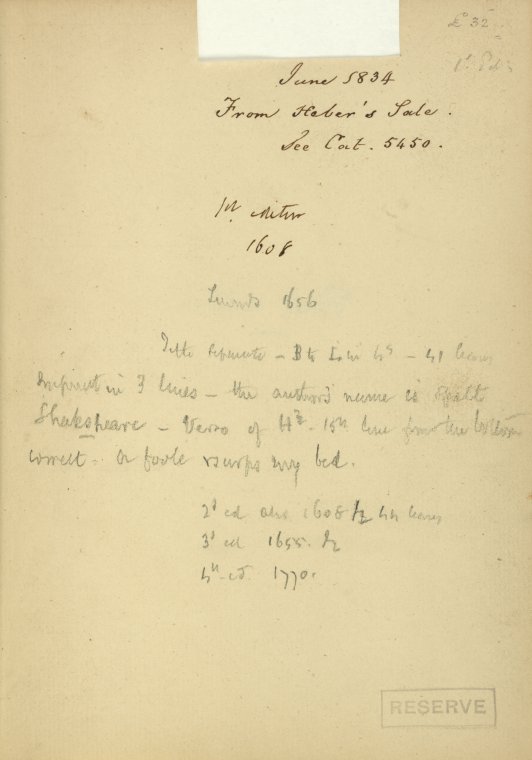 £" 32
1st Ed
June 1834
From Heber's Sale.
See Cat. 5450.
1st edition
1608
Lownds 1656
Title separate - B to L in 4s - 41 leaves
Imprint in 3 lines - the author's name is spelt
Shakspeare - Verso of H - 15th line from the bottom
correct - a foole usurps my bed.
2d ed also 1608 44 leaves
3d ed 1655.
4th ed. 1770.
RESERVE